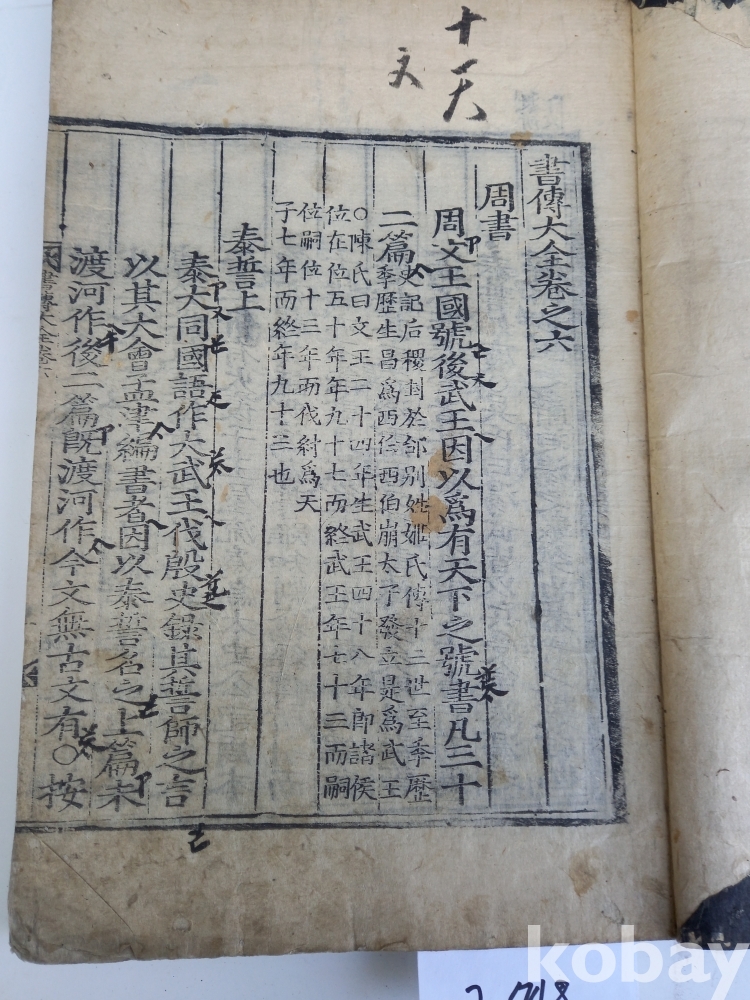 十一天
文
書傳大全卷之六
周書
周文王國號後武王因以爲有天下之號書凡三十
二篇
史記后稷封於邰别姓姬氏傳十二世至季歷
季歷生昌爲西伯西伯崩太子發立是爲武王
○陳氏曰文王二十四年生武王四十八年即諸侯
位在位五十年年九十七而終武王年七十三而嗣
位嗣位十三年而伐紂爲天
子七年而終年九十三也
泰誓上
泰大同國語作大武王伐殷史錄其誓師之言
以其大會孟津編書者因以泰誓名之上篇未
渡河作後二篇旣渡河作今文無古文有○按
書傳大全卷六
kobay